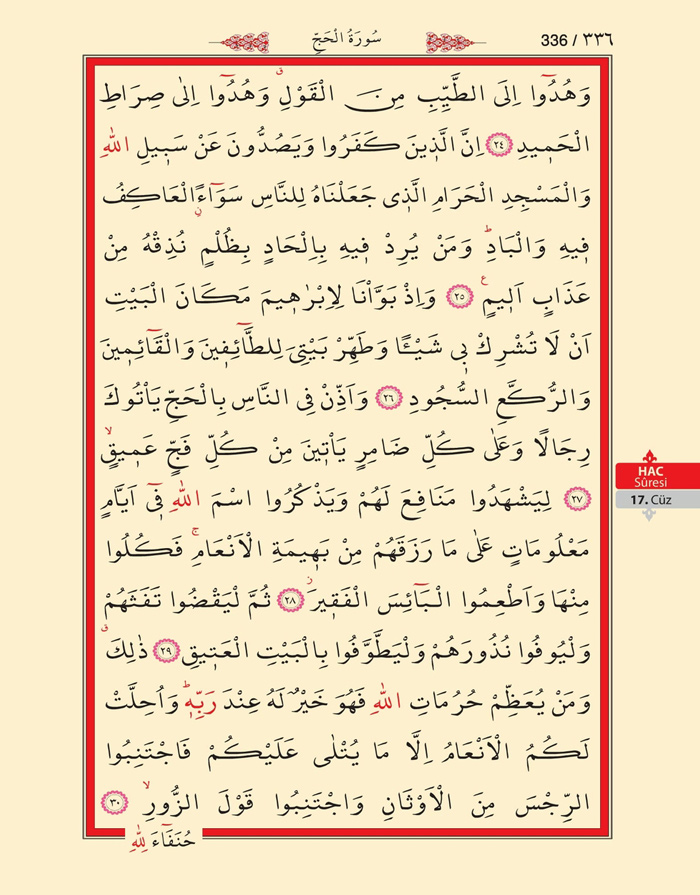 سُورَةُ الْحَجِّ
336 / ٣٣٦
وَهُدُٓوا اِلَى الطَّيِّبِ مِنَ الْقَوْلِۗ وَهُدُٓوا اِلٰى صِرَاطِ
الْحَم۪يدِ ﴿٢٤﴾ اِنَّ الَّذ۪ينَ كَفَرُوا وَيَصُدُّونَ عَنْ سَب۪يلِ اللّٰهِ
وَالْمَسْجِدِ الْحَرَامِ الَّذ۪ي جَعَلْنَاهُ لِلنَّاسِ سَوَٓاءًۨ الْعَاكِفُ
ف۪يهِ وَالْبَادِۜ وَمَنْ يُرِدْ ف۪يهِ بِاِلْحَادٍ بِظُلْمٍ نُذِقْهُ مِنْ
عَذَابٍ اَل۪يمٍ۟ ﴿٢٥﴾ وَاِذْ بَوَّأْنَا لِاِبْرٰه۪يمَ مَكَانَ الْبَيْتِ
اَنْ لَا تُشْرِكْ ب۪ي شَيْـًٔا وَطَهِّرْ بَيْتِيَ لِلطَّٓائِف۪ينَ وَالْقَٓائِم۪ينَ
وَالرُّكَّعِ السُّجُودِ ﴿٢٦﴾ وَاَذِّنْ فِي النَّاسِ بِالْحَجِّ يَأْتُوكَ
رِجَالًا وَعَلٰى كُلِّ ضَامِرٍ يَأْت۪ينَ مِنْ كُلِّ فَجٍّ عَم۪يقٍۙ
﴿٢٧﴾ لِيَشْهَدُوا مَنَافِعَ لَهُمْ وَيَذْكُرُوا اسْمَ اللّٰهِ ف۪ٓي اَيَّامٍ
مَعْلُومَاتٍ عَلٰى مَا رَزَقَهُمْ مِنْ بَه۪يمَةِ الْاَنْعَامِۚ فَكُلُوا
مِنْهَا وَاَطْعِمُوا الْبَٓائِسَ الْفَق۪يرَۘ ﴿٢٨﴾ ثُمَّ لْيَقْضُوا تَفَثَهُمْ
وَلْيُوفُوا نُذُورَهُمْ وَلْيَطَّوَّفُوا بِالْبَيْتِ الْعَت۪يقِ ﴿٢٩﴾ ذٰلِكَۗ
وَمَنْ يُعَظِّمْ حُرُمَاتِ اللّٰهِ فَهُوَ خَيْرٌ لَهُ عِنْدَ رَبِّه۪ۜ وَاُحِلَّتْ
لَكُمُ الْاَنْعَامُ اِلَّا مَا يُتْلٰى عَلَيْكُمْ فَاجْتَنِبُوا
الرِّجْسَ مِنَ الْاَوْثَانِ وَاجْتَنِبُوا قَوْلَ الزُّورِۙ ﴿٣٠﴾
حُنَفَٓاءَ لِلّٰهِ
HAC
Sûresi
17. Cüz